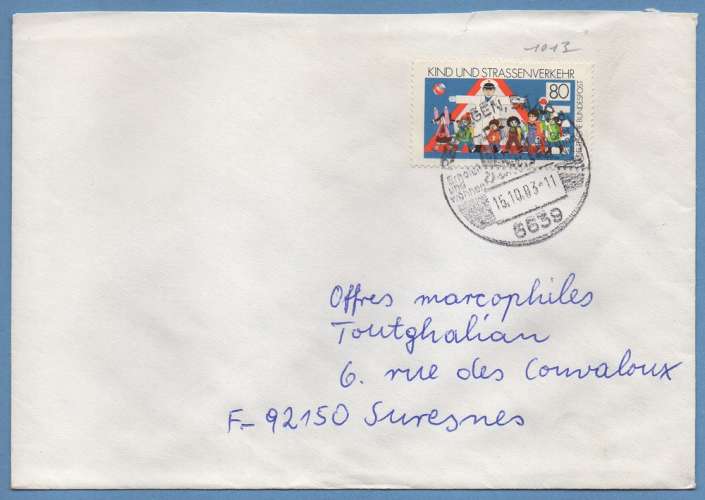 1013
KIND UND STRASSENVERKEHR
80
DEUTSCHE BUNDESPOST
Erholen
und
wohnen
15.10.83-11
6639
Offres marcophiles
Toutghalian
6. rue des Couvaloux
F-92150 Suresnes